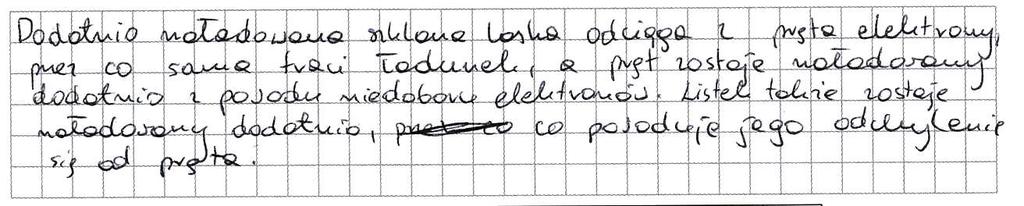 Dodatnio naładowana szklana laska odciąga z pręta elektrony,
przez co sama traci ładunek, a pręt zostaje naładowany
dodatnio z powodu niedoboru elektronów. Listek także zostaje
naładowany dodatnio, przez co co powoduje jego odchylenie
się od pręta.